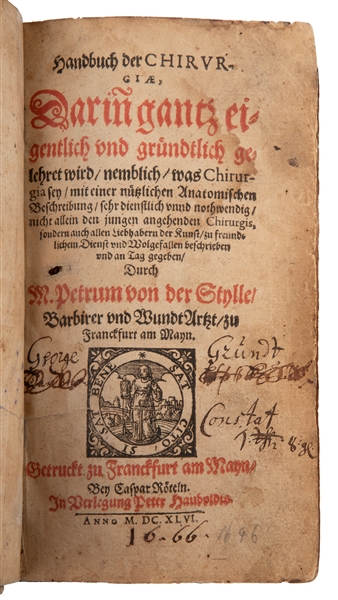 Handbuch der CHIRVR-
GIÆ,
Dariñ gantz ei-
gentlich vnd gründtlich ge-
lehret wird / nemblich / was Chirur-
gia sey / mit einer nützlichen Anatomischen
Beschreibung / sehr dienstlich vnnd nothwendig /
nicht allein den jungen angehenden Chirurgis,
sondern auch allen Liebhabern der Kunst / zu freund-
lichem Dienst vnd Wolgefallen beschrieben
vnd an Tag gegeben /
Durch
M. Petrum von der Stylle /
Barbirer vnd WundtArtzt / zu
Franckfurt am Mayn.
George Gründt
SAT CITO, SI SAT BENE
Constat
Getruckt zu Franckfurt am Mayn /
Bey Caspar Röteln.
In Verlegung Peter Hauboldts.
ANNO M. DC. XLVI.
16.66. 1646